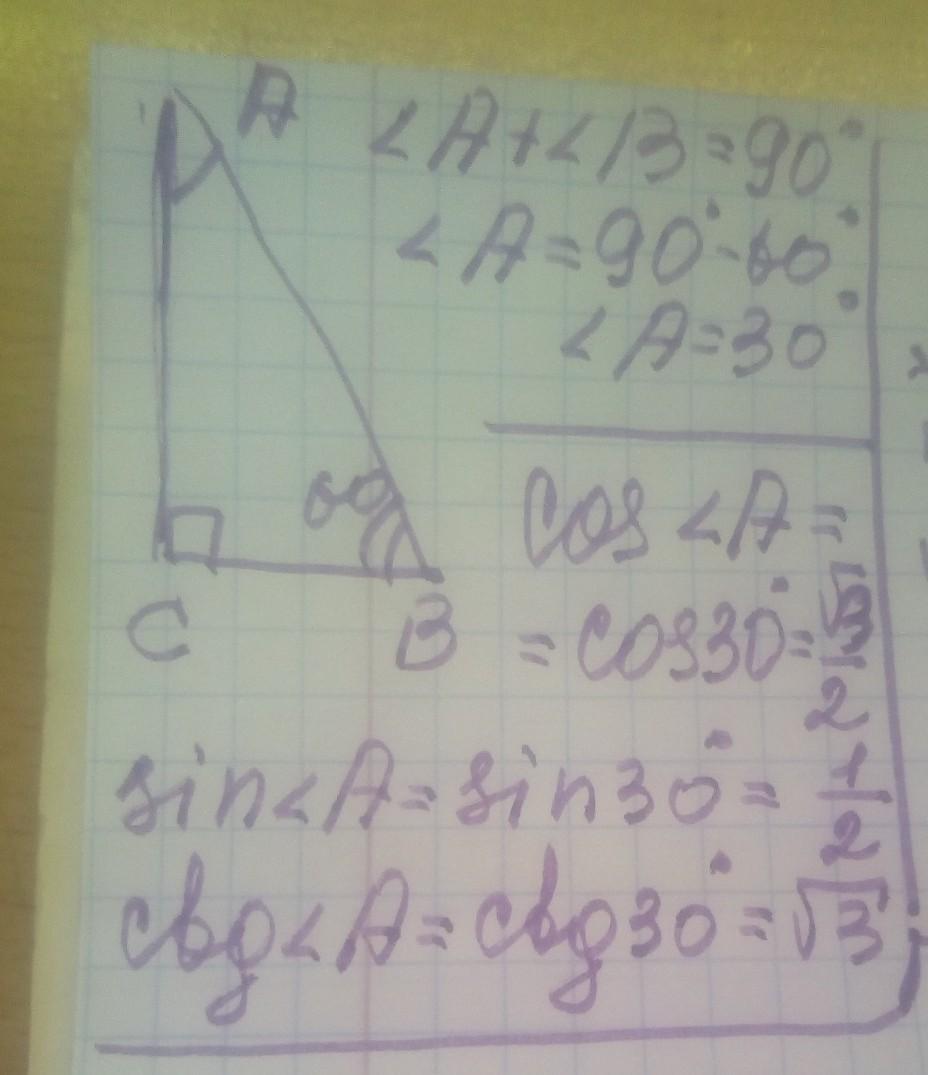 A
∠A+∠B=90°
∠A=90°-60°
∠A=30°
60
C
B
cos∠A=
=cos30°=√3/2
sin∠A=sin30°=1/2
ctg∠A=ctg30°=√3